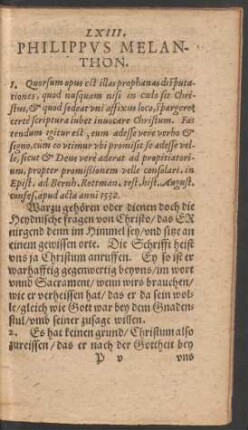 LXIII.
PHILIPPVS MELAN-
THON.
1. Quorsum opus est illas prophanas disputa-
tiones, quod nusquam nisi in cælo sit Chri-
stus, & quod sedeat vni affixus loco, spargere?
certè scriptura iubet inuocare Christum. Fa-
tendum igitur est, eum adesse verè verbo &
signo, cum eo vtimur vbi promisit se adesse vel-
le, sicut & Deus verè aderat ad propitiatori-
um, propter promissionem velle consolari. in
Epist. ad Bernh. Rottman. test. hist. August.
confes. apud acta anni 1530.
Warzu gehören oder dienen doch die
Heydnische fragen von Christo/ das ER
nirgend denn im Himmel sey/ vnd sitze an
einem gewissen orte. Die Schrifft heist
vns ja Christum anruffen. Ey so ist er
warhafftig gegenwertig bey vns/ im wort
vnd Sacrament/ wenn wirs brauchen/
wie er verheissen hat/ das er da sein wol-
le/ gleich wie Gott war bey dem Gnaden-
stul/ vmb seiner zusage willen.
2. Es hat keinen grund/ Christum also
zureissen/ das er nach der Gottheit bey
P v vns